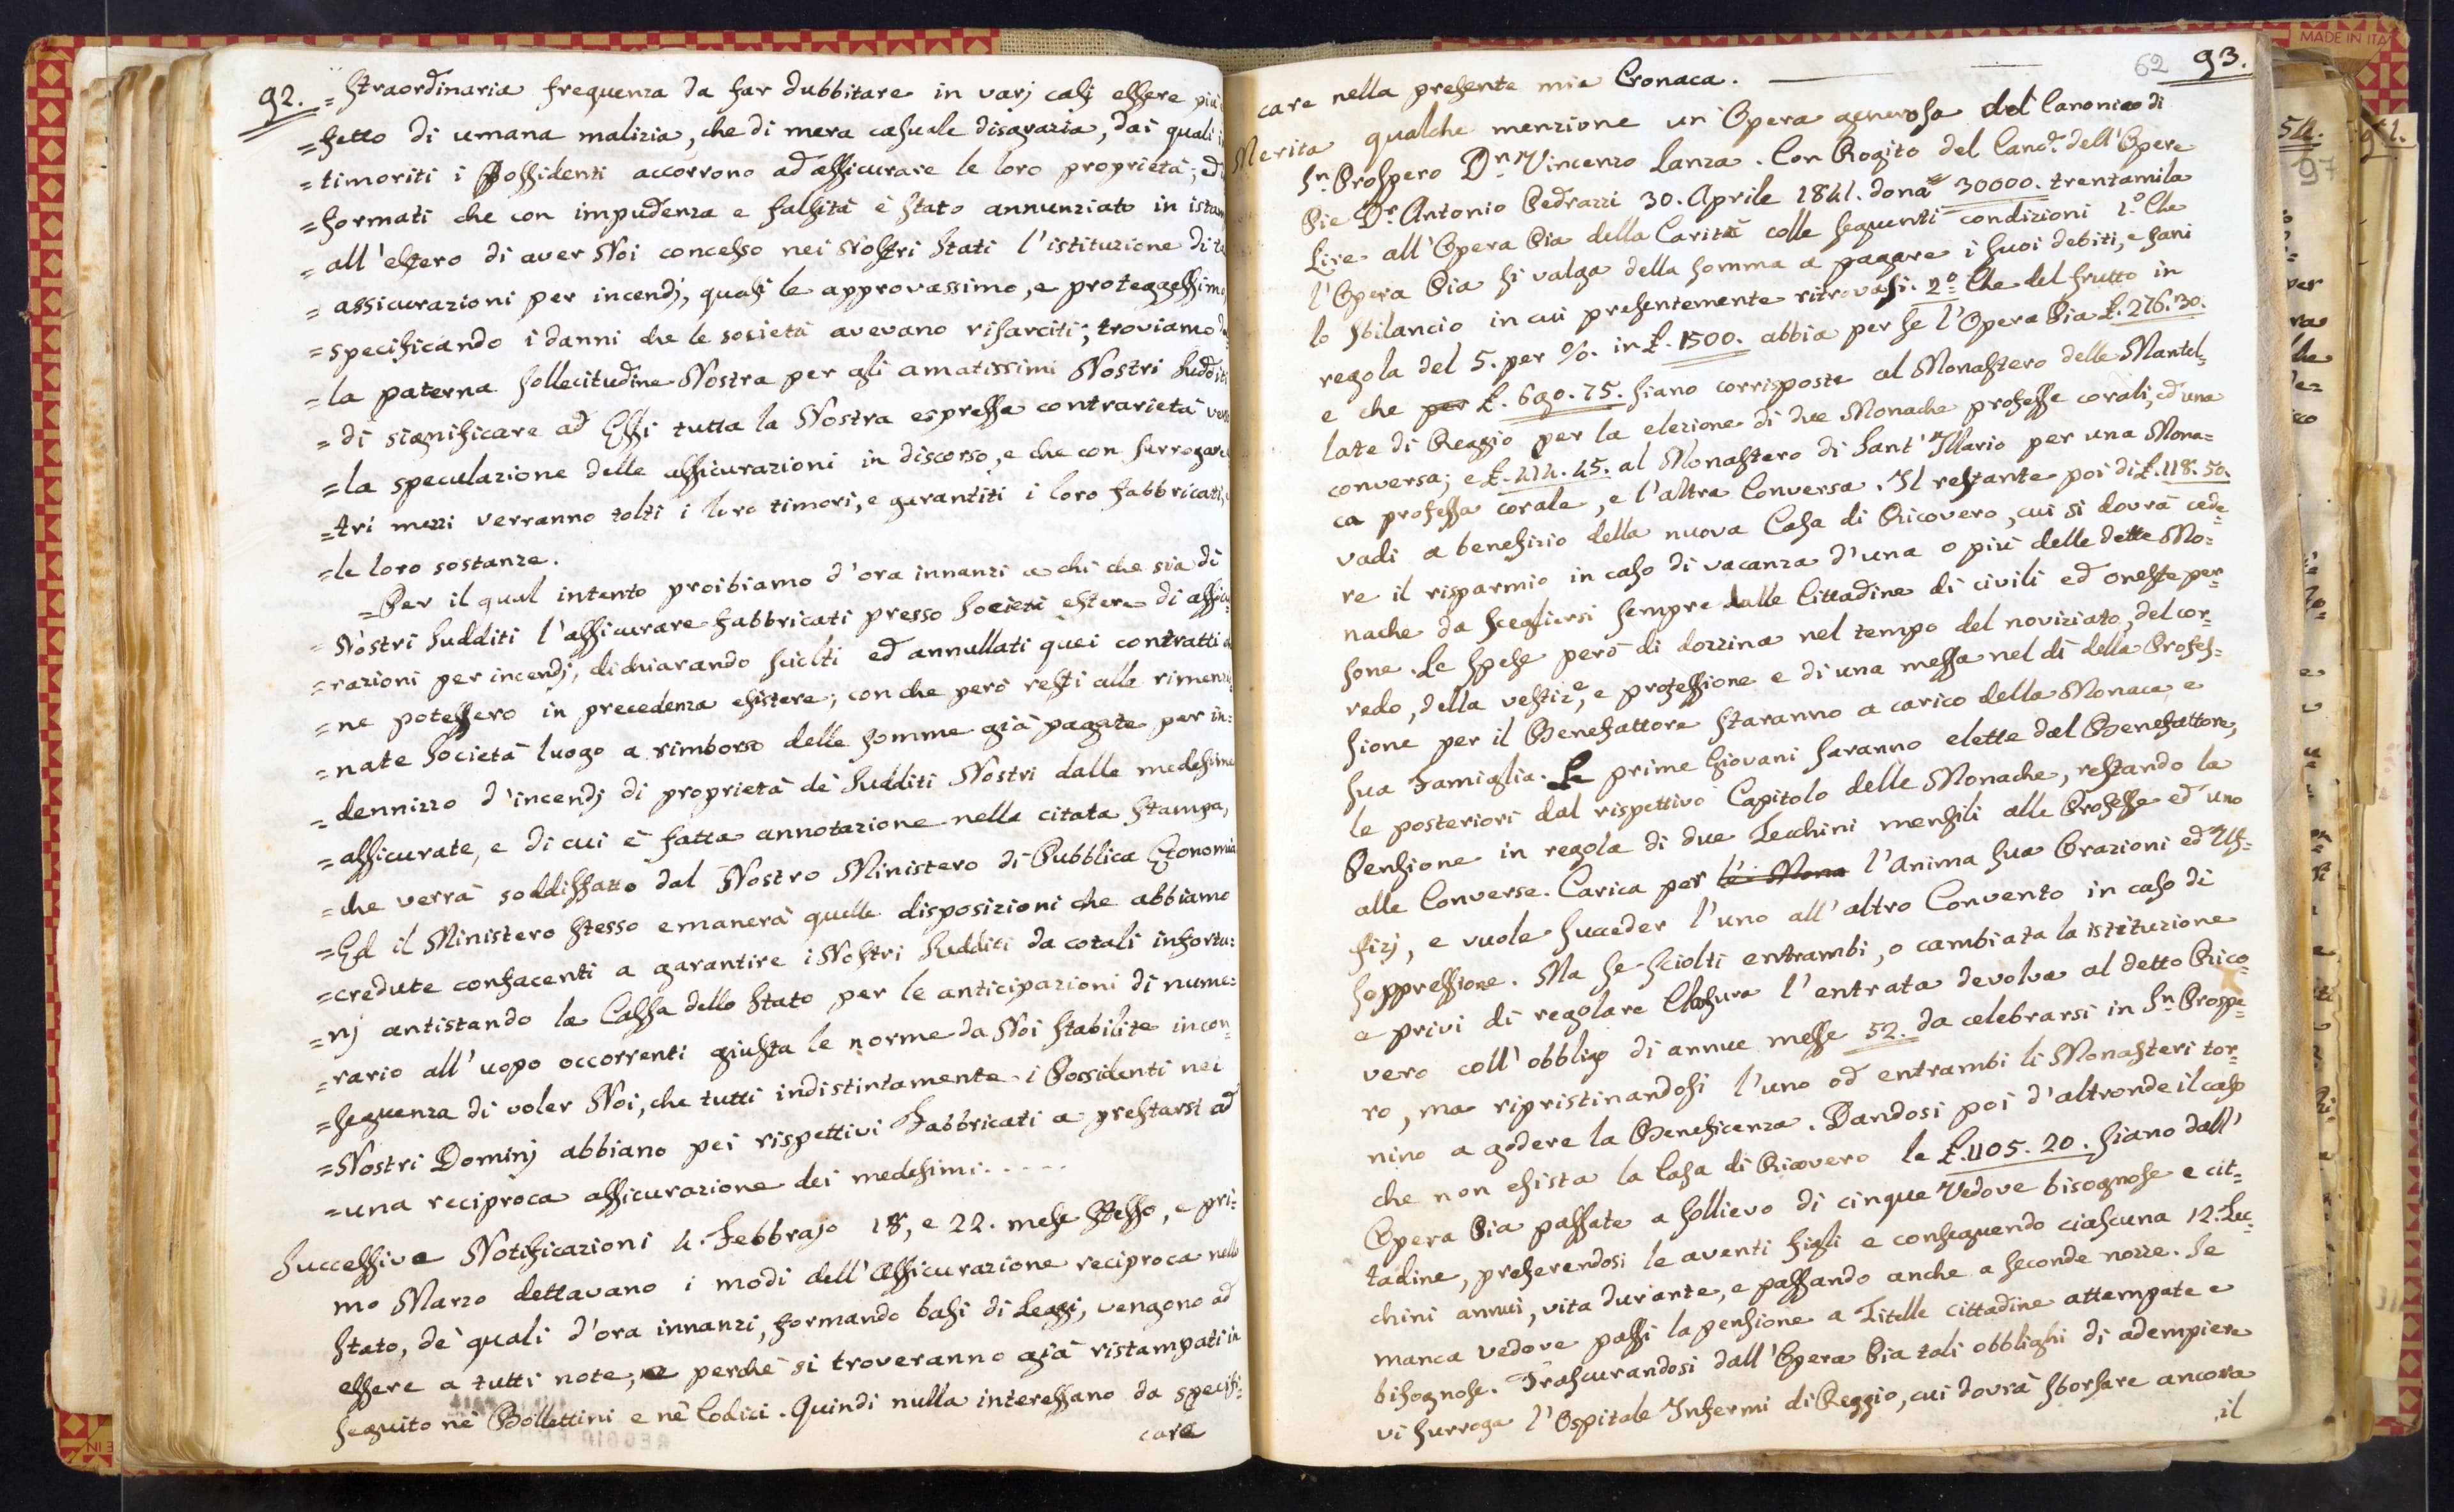 92. = straordinaria frequenza da far dubbitare in varj casi essere più
=fetto di umana malizia, che di mera casuale disgrazia, dai quali
=timoriti i Possidenti accorrono ad assicurare le loro proprietà; ed
=formati che con impudenza e falsità è stato annunziato in
= all'estero di aver Noi concesso nei Nostri Stati l'istituzione di
= assicurazioni per incendj, quasi le approvassimo, e proteggessimo,
=specificando i danni che le società avevano risarciti; troviamo
=la paterna sollecitudine Nostra per gli amatissimi Nostri Sudditi
= di significare ad Essi tutta la Nostra espressa contrarietà
=la speculazione delle assicurazioni in discorso, e che con surrogare
=tri mezzi verranno tolti i loro timori, e garantiti i loro fabbricati,
=le loro sostanze.
=Per il qual intento proibiamo d'ora innanzi a chi che sia di
= Nostri Sudditi l'assicurare fabbricati presso Società estere di assicu=
=razioni per incendj, dichiarando sciolti ed annullati quei contratti
=ne potessero in precedenza esistere; con che però resti alle rimenzio
=nate Società luogo a rimborso delle somme già pagate per in=
=dennizzo d'incendj di proprietà de' Sudditi Nostri dalle medesime
=assicurate, e di cui è fatta annotazione nella citata stampa,
=che verrà soddisfatto dal Nostro Ministero di Pubblica Economia
=Ed il Ministero stesso emanerà quelle disposizioni che abbiamo
=credute confacenti a garantire i Nostri Sudditi da cotali infortu=
=nj antistando la Cassa dello Stato per le anticipazioni di nume=
=rario all'uopo occorrenti giusta le norme da Noi stabilite in con=
=seguenza di voler Noi, che tutti indistintamente i Possidenti nei
=Nostri Dominj abbiano pei rispettivi Fabbricati a prestarsi ad
=una reciproca assicurazione dei medesimi.....
Successive Notificazioni 4. Febbrajo 18, e 22. mese stesso, e pri=
mo Marzo dettavano i modi dell'Assicurazione reciproca nello
Stato, de' quali d'ora innanzi, formando basi di Leggi, vengono ad
essere a tutti note, perchè si troveranno già ristampati in
seguito ne' Bollettini e ne' Codici. Quindi nulla interessano da specifi=
care
62 93.
care nella presente mia Cronaca.
Merita qualche menzione un'Opera generosa del Canonico di
Sn. Prospero Dn. Vincenzo Lanza. Con Rogito del Canc.e dell'Opere
Pie Dr. Antonio Pedrazzi 30. Aprile 1841. donà 30000. trentamila
Lire all'Opera Pia della Carità colle seguenti condizioni 1.° Che
l'Opera Pia si valga della somma a pagare i suoi debiti, e sani
lo sbilancio in cui presentemente ritrovasi. 2.° Che del frutto in
regola del 5. per %. in £. 1500. abbia per se l'Opera Pia £. 276. 30.
e che per £. 690. 75. siano corrisposte al Monastero delle Mantel=
late di Reggio per la elezione di due Monache professe corali, ed una
conversa; e £. 414. 45. al Monastero di Sant'Illario per una Mona=
ca professa corale, e l'altra Conversa. Il restante poi di £. 118. 50.
vadi a benefizio della nuova Casa di Ricovero, cui si dovrà cede=
re il risparmio in caso di vacanza d'una o più delle dette Mo=
nache da scegliersi sempre dalle Cittadine di civili ed oneste per=
sone. Le spese però di dozzina nel tempo del noviziato, del cor=
redo, della vestiz.e, e professione e di una messa nel dì della Profes=
sione per il Benefattore staranno a carico della Monaca e
sua Famiglia. Le prime Giovani saranno elette dal Benefattore,
le posteriori dal rispettivo Capitolo delle Monache, restando la
Pensione in regola di due Zecchini mensili alle Professe ed uno
alle Converse. Carica per le Mona l'anima sua Orazioni ed Uf=
fizj, e vuole succeder l'uno all'altro Convento in caso di
soppressione. Ma se sciolti entrambi, o cambiata la istituzione
e privi di regolare Clausura l'entrata devolva al detto Rico=
vero coll'obbligo di annue messe 52. da celebrarsi in Sn. Prospe=
ro, ma ripristinandosi l'uno od entrambi li Monasteri tor=
nino a godere la Beneficenza. Dandosi poi d'altronde il caso
che non esista la Casa di Ricovero le £. 1105. 20. siano dall'
Opera Pia passate a sollievo di cinque Vedove bisognose e cit=
tadine, preferendosi le aventi figli e conseguendo ciascuna 12. Zec=
chini annui, vita durante, e passando anche a seconde nozze. Se
manca vedove passi la pensione a Zitelle cittadine attempate e
bisognose. Trascurandosi dall'Opera Pia tali obblighi di adempiere
vi surroga l'Ospitale Infermi di Reggio, cui dovrà sborsare ancora
il
MADE IN ITA
97